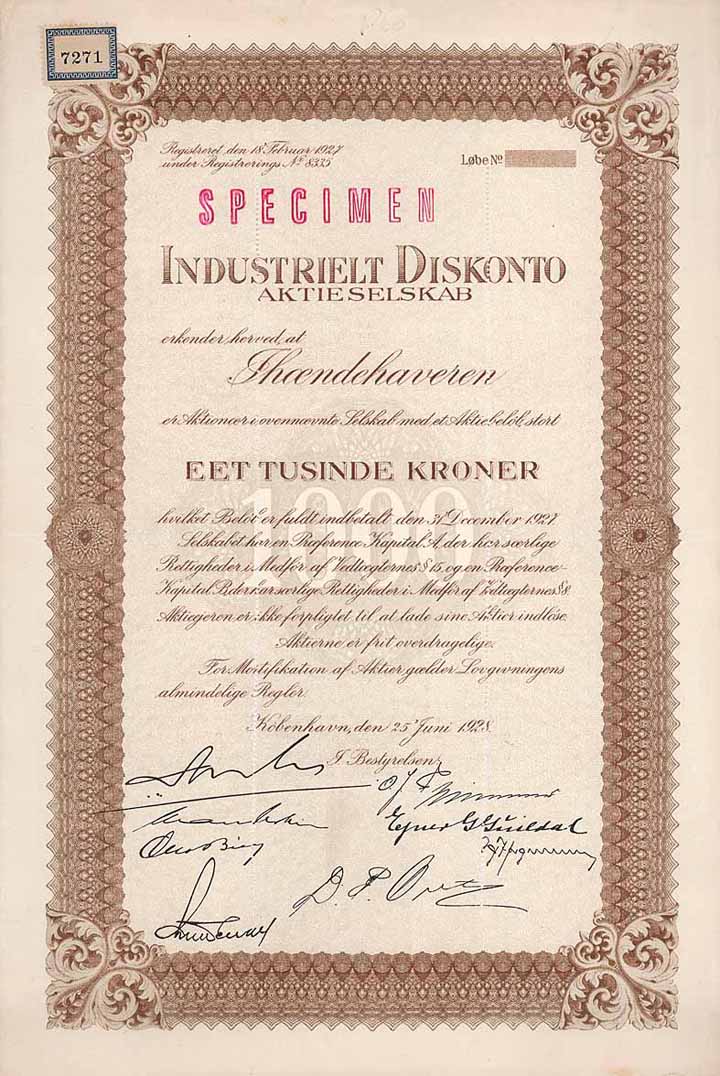 7271
Registreret den 18' Februar 1927
under Registrerings No 8335
Løbe No
SPECIMEN
INDUSTRIELT DISKONTO
AKTIESELSKAB
erkender herved, at
Ihændehaveren
er Aktionær i ovennævnte Selskab med et Aktiebeløb, stort
EET TUSINDE KRONER
1000
hvilket Beløb er fuldt indbetalt den 31' December 1927.
Selskabet har en Præference Kapital A, der har særlige
Rettigheder i Medfør af Vedtægternes § 15, og en Præference-
Kapital B, der har særlige Rettigheder i Medfør af Vedtægternes § 8.
Aktiegeren er ikke forpligtet til at lade sine Aktier indløse.
Aktierne er frit overdragelige.
For Mortifikation af Aktier gælder Lovgivningens
almindelige Regler.
København, den 25' Juni 1928.
I Bestyrelsen,